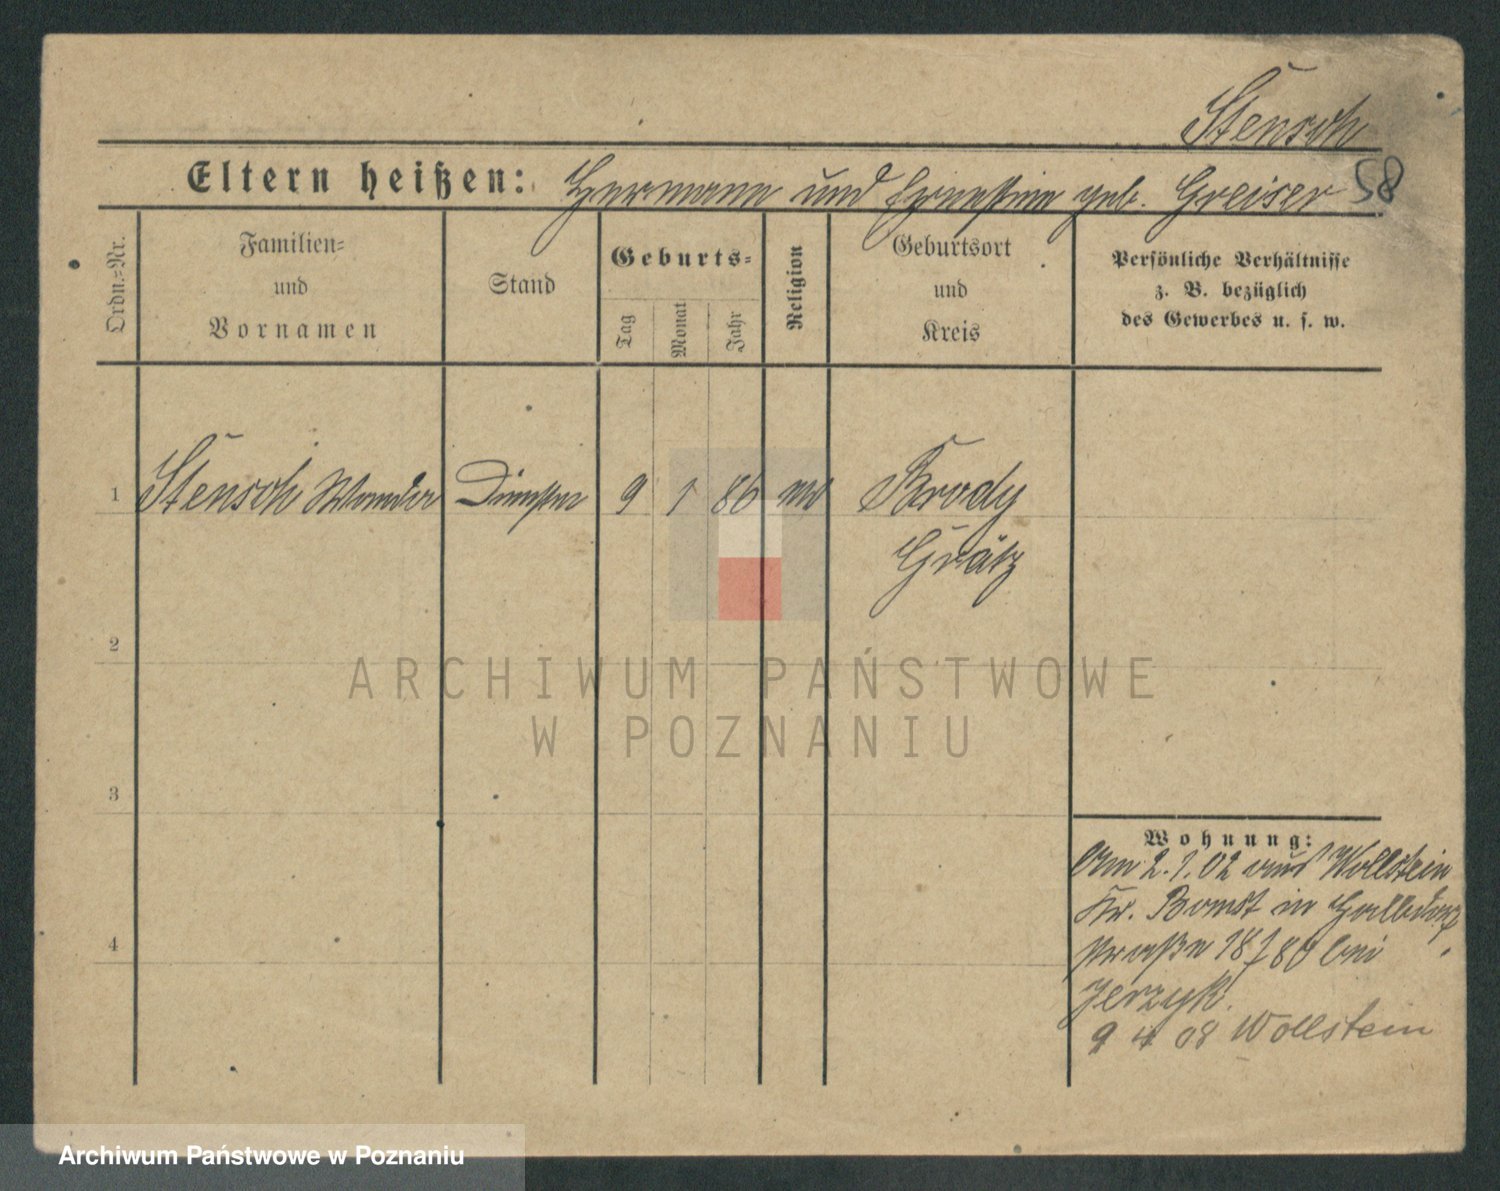 Stensch
Eltern heißen: Hermann und Ernestine geb. Greiser 58
Ordn.=Nr.
Familien=
und
Vornamen
Stand
Geburts=
Tag
Monat
Jahr
Religion
Geburtsort
und
Kreis
Persönliche Verhältnisse
z. B. bezüglich
des Gewerbes u. s. w.
1 Stensch Wanda 9 1 86 Brody
Grätz
2
3
4
ARCHIWUM PAŃSTWOWE
W POZNANIU
Wohnung:
Am 2.1.02 aus Wollstein
Kr. Bomst in
straße bei
Jerzyk.
9 4 08 Wollstein
Archiwum Państwowe w Poznaniu